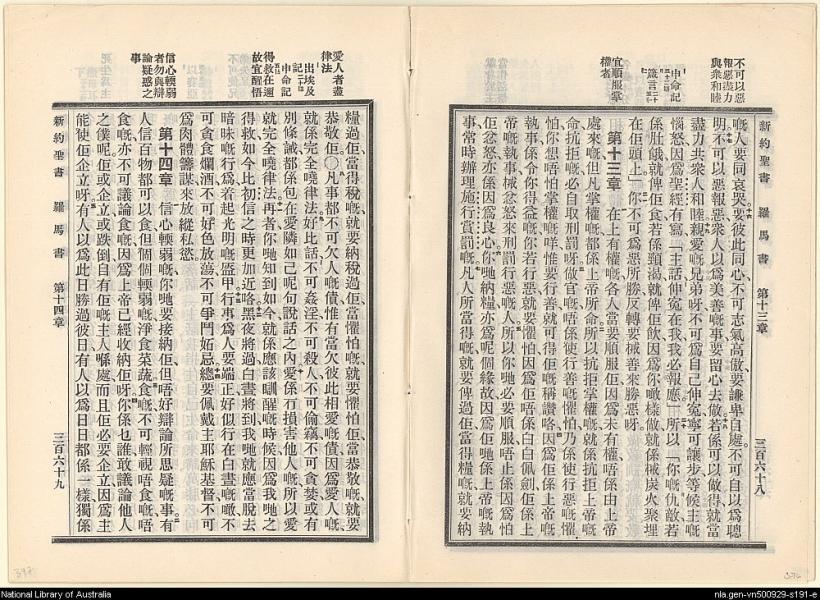 新約聖書 羅馬書 第十三章 三百六十八
不可以惡
報惡盡力
與衆和睦
申命記
箴言
宜順服掌
權者
嘅人要同哀哭要彼此同心不可志氣高傲要謙卑自處不可自以爲聰
明不可以惡報惡衆人以爲美善嘅事要留心去做若係可以做得就當
盡力共衆人和睦親愛嘅兄弟呀不可爲自己伸寃寧可讓步等候主嘅
惱怒因爲聖經有寫「主話伸寃在我我必報應」所以「你嘅仇敵若
係肚餓就俾佢食若係頸渴就俾佢飲因爲你噉樣做就係械炭火聚埋
在佢頭上」你不可爲惡所勝反轉要械善來勝惡呀
第十三章 在上有權嘅各人當要順服佢因爲未有權唔係由上帝
處來嘅但凡掌權嘅都係上帝所命所以抗拒掌權嘅就係抗拒上帝嘅
命抗拒嘅必自取刑罰呀做官嘅唔係使行善嘅懼怕乃係使行惡嘅懼
怕你想唔怕掌權嘅咩惟要行善就可得佢嘅稱讚咯因爲佢係上帝嘅
執事係令你得益嘅你若行惡就要懼怕因爲佢唔係白白佩劍佢係上
帝嘅執事械忿怒來刑罰行惡嘅人所以你哋必要順服唔止係因爲怕
佢忿怒亦係因爲良心你哋納糧亦爲呢個緣故因爲佢哋係上帝嘅執
事常時辦理施行賞罰嘅凡人所當得嘅就要俾過佢當得糧嘅就要納
愛人者盡
律法
出埃及
記
申命記
得救在邇
故宜醒悟
信心輭弱
者勿與辯
論疑惑之
事
糧過佢當得稅嘅就要納稅過佢當懼怕嘅就要懼怕佢當恭敬嘅就要
恭敬佢〇凡事都不可欠人嘅債惟有當欠彼此相愛嘅債因爲愛人嘅
就係完全嘵律法好比話不可姦淫不可殺人不可偷竊不可貪婪或有
別條誡都係包在愛隣如己呢句說話之內愛係冇損害他人嘅所以愛
就完全嘵律法再者你哋知到如今就係應該瞓醒嘅時候因爲我哋之
得救如今比初信之時更加近咯黑夜將過白晝將到我哋就應當脫去
暗昧嘅行爲着起光明嘅盔甲行事爲人要端正好似行在白晝嘅噉不
可貪食爛酒不可好色放蕩不可爭鬥妬忌總要佩戴主耶穌基督不可
爲肉體籌謀來放縱私慾
第十四章 信心輭弱嘅你哋要接納佢但唔好辯論所思疑嘅事有
人信百物都可以食但個個輭弱嘅淨食菜蔬食嘅不可輕視唔食嘅唔
食嘅亦不可議論食嘅因爲上帝已經收納佢呀你係乜誰敢議論他人
之僕呢佢或企立或跌倒自有佢嘅主人喺處而且佢必要企立因爲主
能使佢企立呀有人以爲此日勝過彼日有人以爲日日都係一樣獨係
新約聖書 羅馬書 第十四章 三百六十九
National Library of Australia
nla.gen-vn500929-s191-e